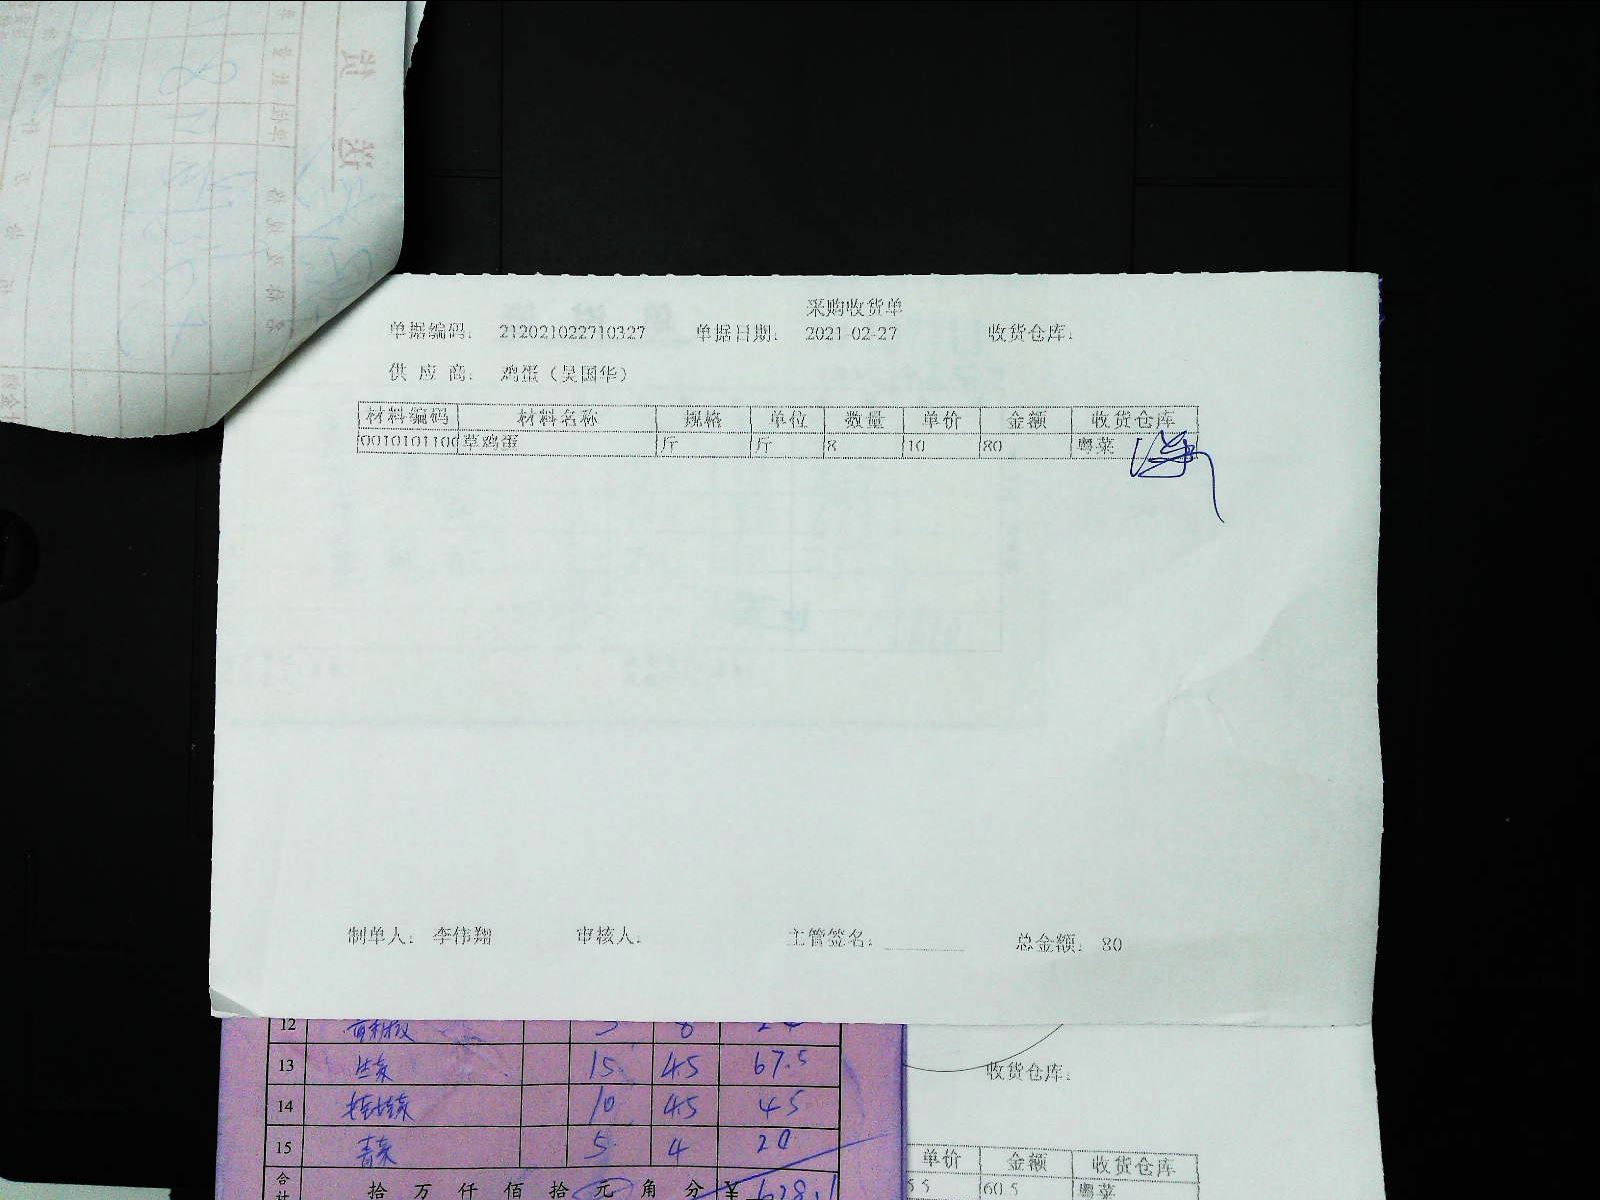 采购收货单
单据编码: 212021022710327 单据日期: 2021-02-27 收货仓库:
供 应 商: 鸡蛋（吴国华）
材料编码 材料名称 规格 单位 数量 单价 金额 收货仓库
0010101100 草鸡蛋 斤 斤 8 10 80 粤菜
制单人: 李伟翔 审核人: 主管签名: 总金额: 80
12 8
13 生菜 15 4.5 67.5
14 10 4.5 45
15 青菜 5 4 20
合计 拾 万 仟 佰 拾 元 角 分 ¥ 628.1
收货仓库:
单价 金额 收货仓库
5.5 60.5 粤菜